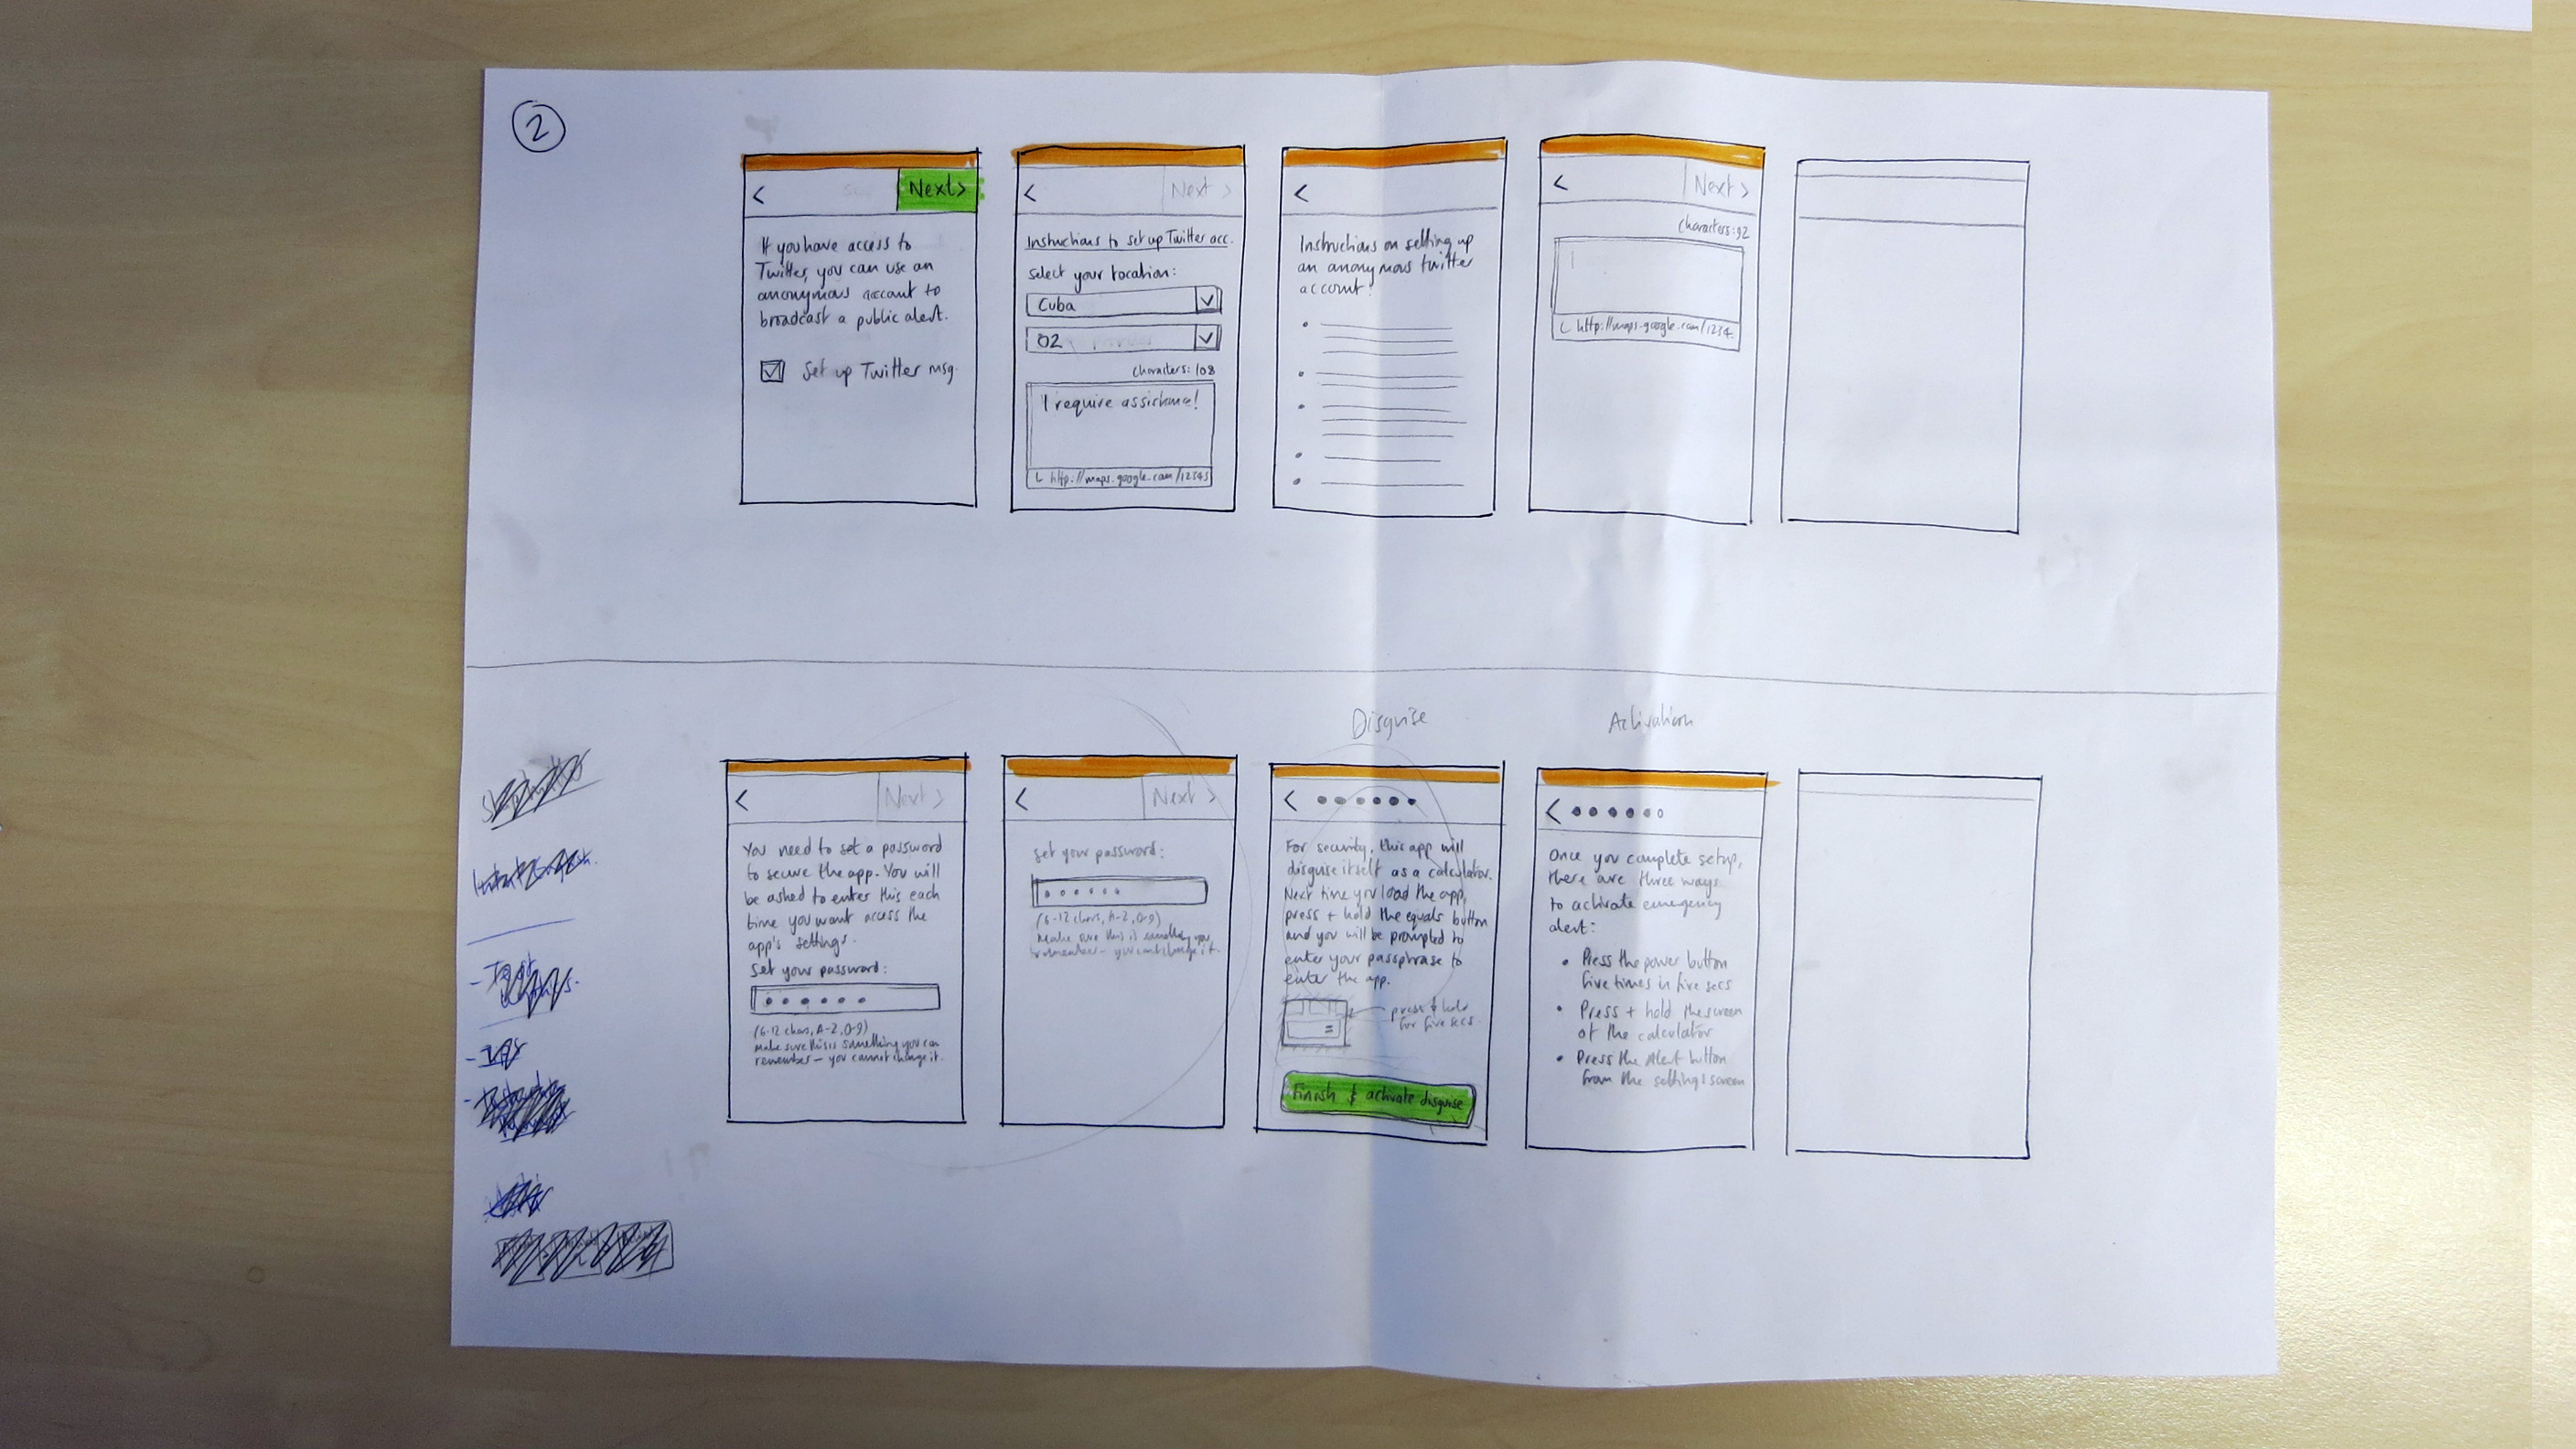 2
<
Next >
If you have access to
Twitter, you can use an
anonymous account to
broadcast a public alert.
Set up Twitter msg.
<
Next >
Instructions to set up Twitter acc.
Select your location:
Cuba
O2
characters: 108
I require assistance!
http://maps.google.com/12345
<
Instructions on setting up
an anonymous twitter
account:
<
Next >
characters: 92
http://maps.google.com/1234
<
Next >
You need to set a password
to secure the app. You will
be asked to enter this each
time you want access the
app's settings.
Set your password:
(6-12 chars, A-Z, 0-9)
Make sure this is something you can
remember - you cannot change it.
<
Next >
Set your password:
(6-12 chars, A-Z, 0-9)
Make sure this is something you
remember - you cant change it.
Disguise
<
For security, this app will
disguise itself as a calculator.
Next time you load the app,
press + hold the equals button
and you will be prompted to
enter your passphrase to
enter the app.
=
press & hold
for five secs.
Finish & activate disguise
Activation
<
Once you complete setup,
there are three ways
to activate emergency
alert:
• Press the power button
five times in five secs
• Press + hold the screen
of the calculator
• Press the Alert button
from the settings screen